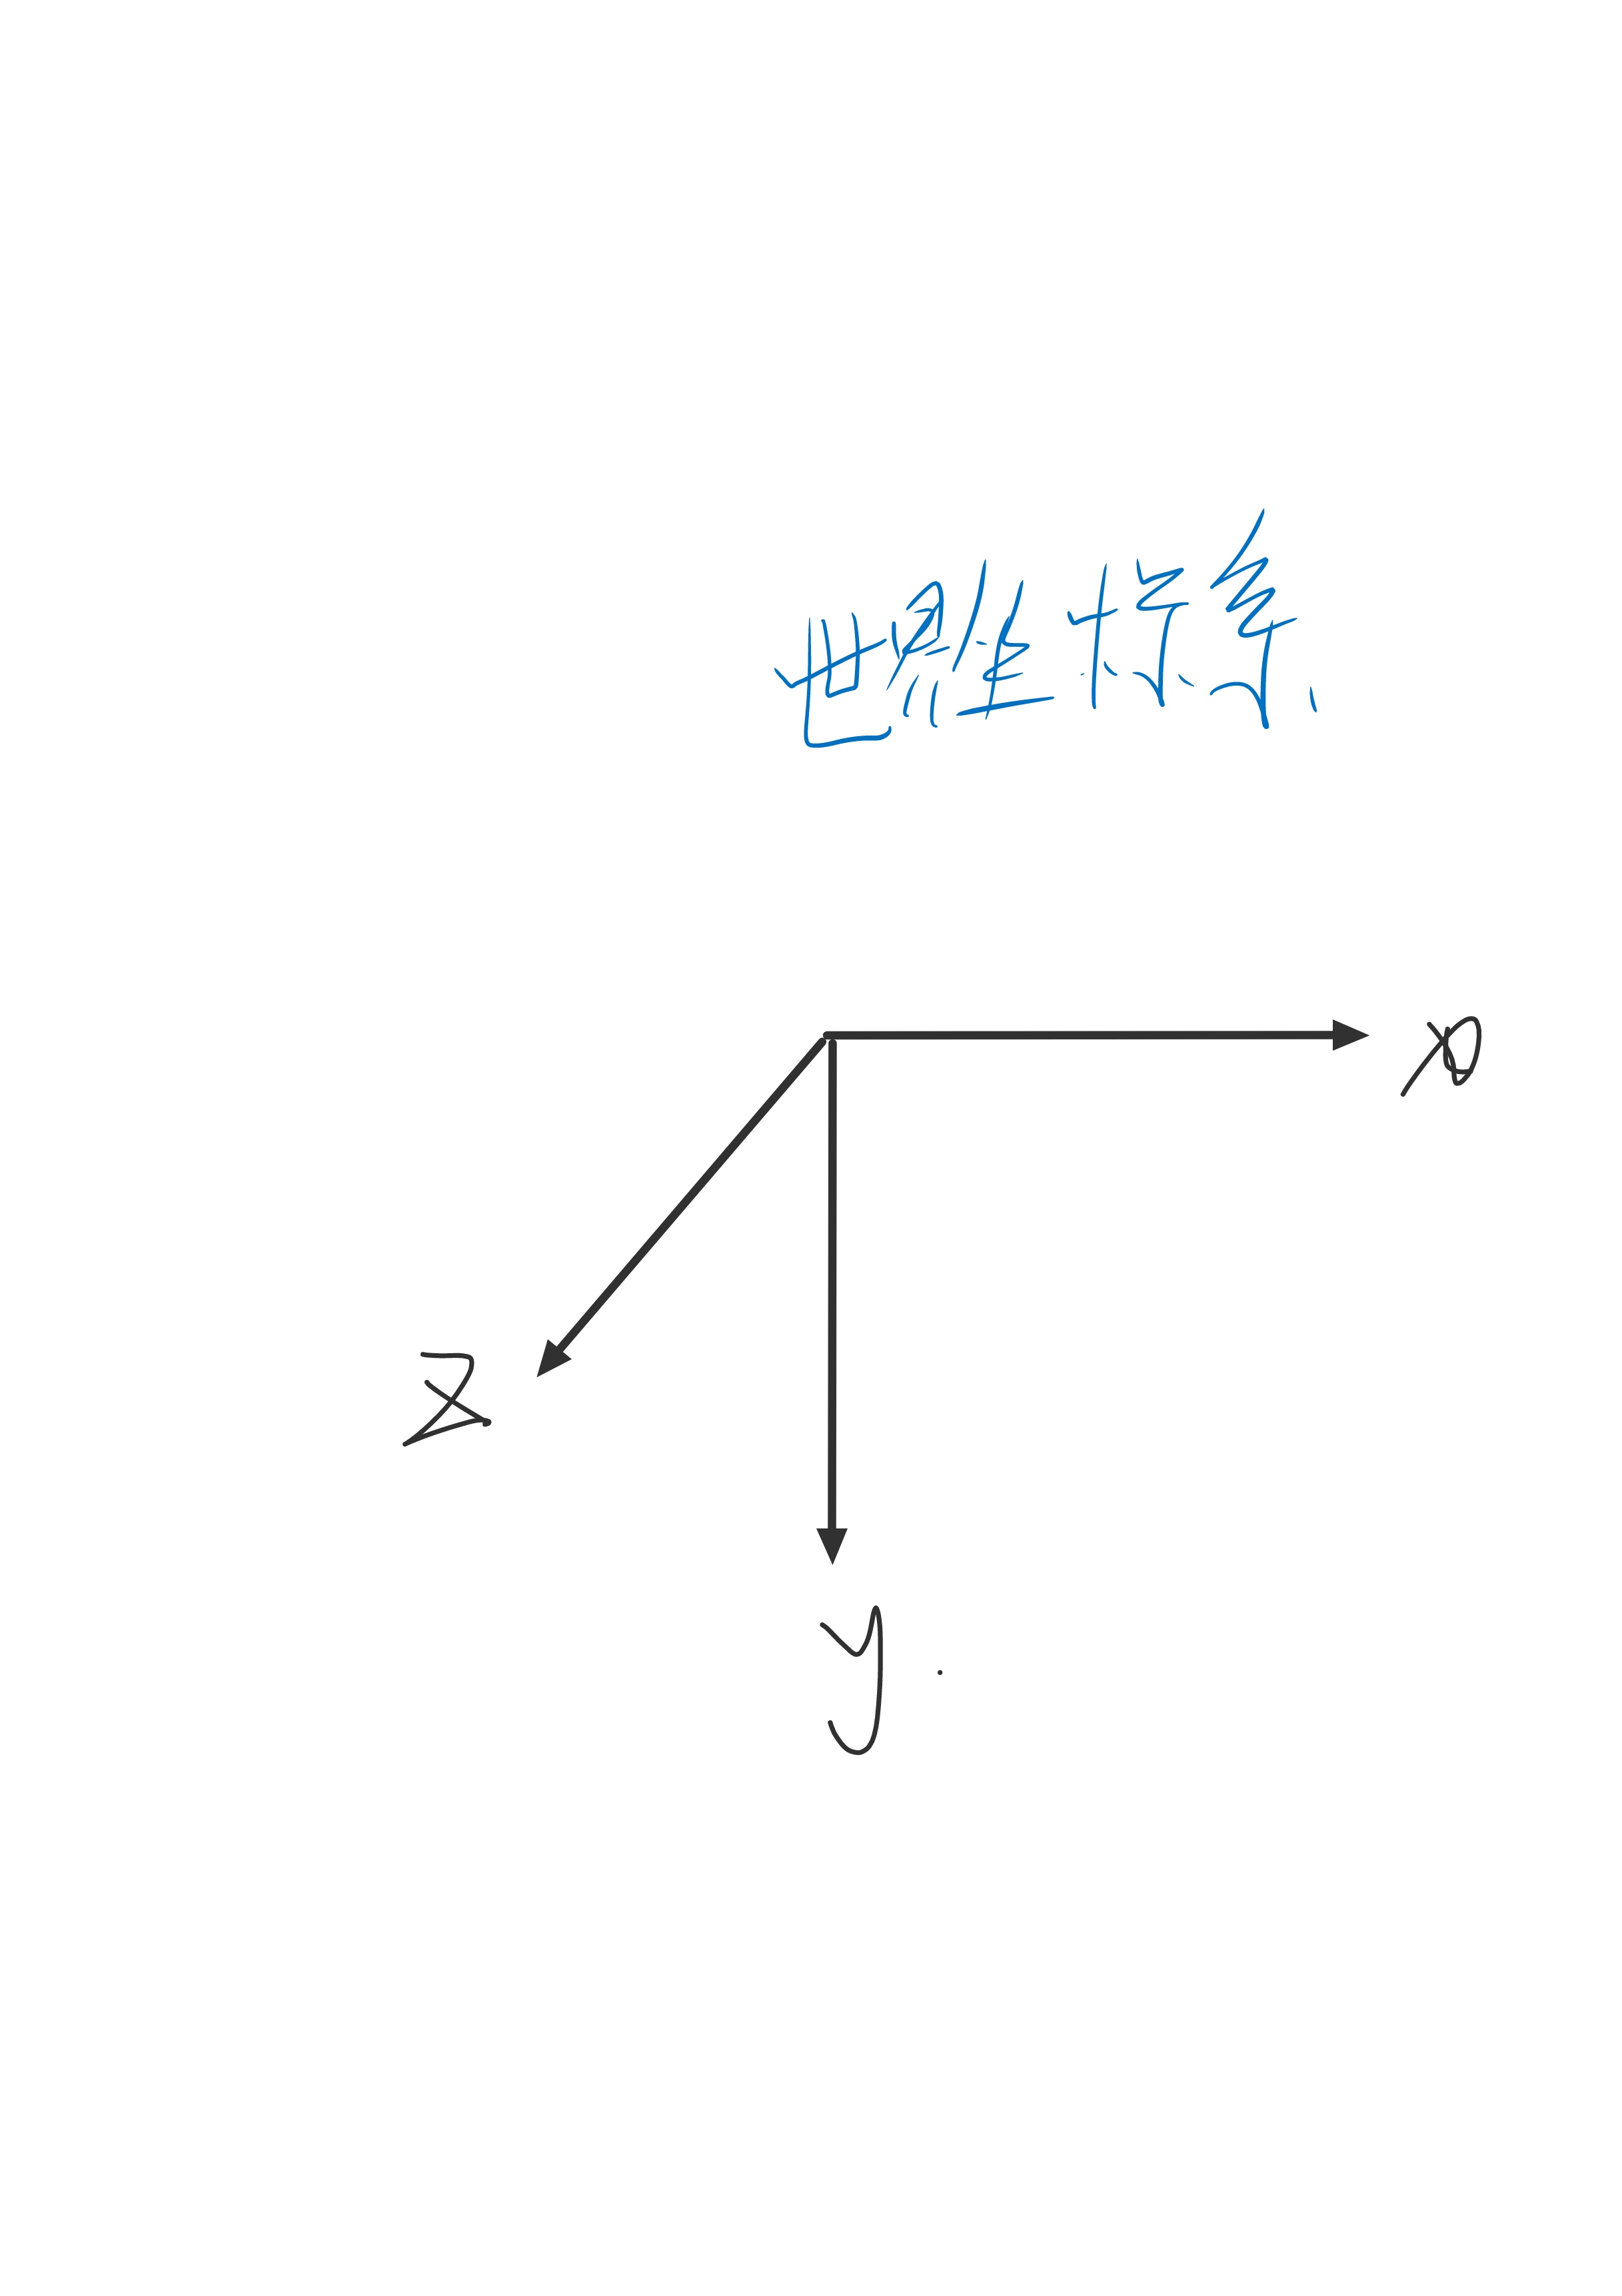 世界坐标系.
x
z
y.